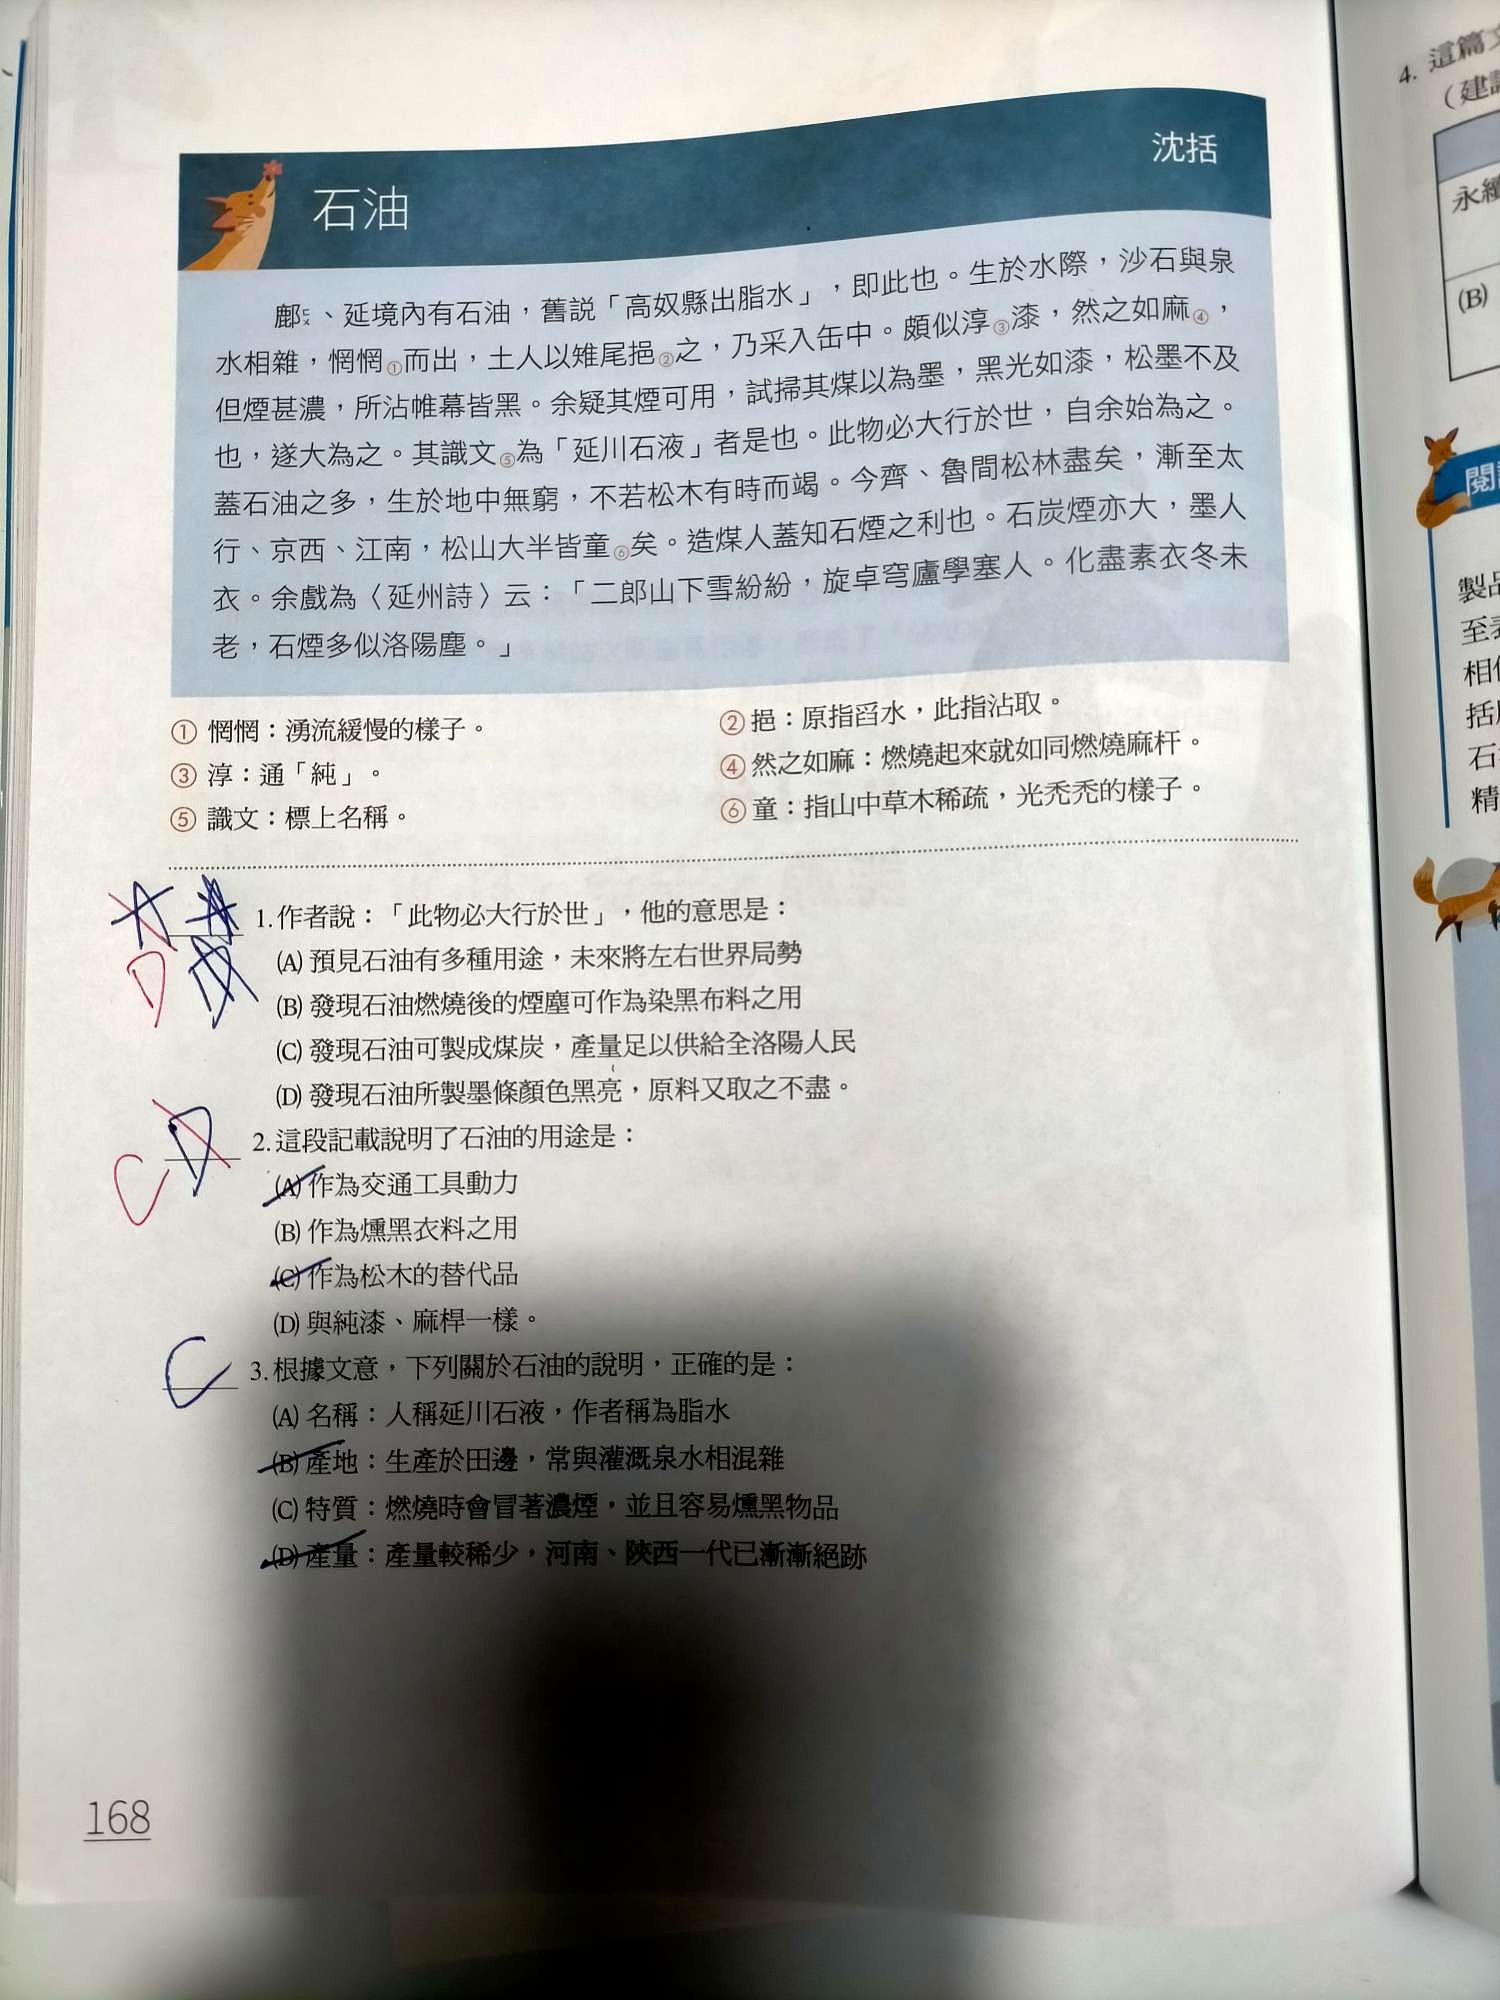 沈括
石油
鄜ㄈㄨ、延境內有石油，舊説「高奴縣出脂水」，即此也。生於水際，沙石與泉
水相雜，惘惘①而出，土人以雉尾挹②之，乃采入缶中。頗似淳③漆，然之如麻④，
但煙甚濃，所沾帷幕皆黑。余疑其煙可用，試掃其煤以為墨，黑光如漆，松墨不及
也，遂大為之。其識文⑤為「延川石液」者是也。此物必大行於世，自余始為之。
蓋石油之多，生於地中無窮，不若松木有時而竭。今齊、魯間松林盡矣，漸至太
行、京西、江南，松山大半皆童⑥矣。造煤人蓋知石煙之利也。石炭煙亦大，墨人
衣。余戲為〈延州詩〉云：「二郎山下雪紛紛，旋卓穹廬學塞人。化盡素衣冬未
老，石煙多似洛陽塵。」
① 惘惘：湧流緩慢的樣子。
② 挹：原指舀水，此指沾取。
③ 淳：通「純」。
④ 然之如麻：燃燒起來就如同燃燒麻杆。
⑤ 識文：標上名稱。
⑥ 童：指山中草木稀疏，光禿禿的樣子。
A
D
1. 作者說：「此物必大行於世」，他的意思是：
(A) 預見石油有多種用途，未來將左右世界局勢
(B) 發現石油燃燒後的煙塵可作為染黑布料之用
(C) 發現石油可製成煤炭，產量足以供給全洛陽人民
(D) 發現石油所製墨條顏色黑亮，原料又取之不盡。
C D
2. 這段記載說明了石油的用途是：
(A) 作為交通工具動力
(B) 作為燻黑衣料之用
(C) 作為松木的替代品
(D) 與純漆、麻桿一樣。
C
3. 根據文意，下列關於石油的說明，正確的是：
(A) 名稱：人稱延川石液，作者稱為脂水
(B) 產地：生產於田邊，常與灌溉泉水相混雜
(C) 特質：燃燒時會冒著濃煙，並且容易燻黑物品
(D) 產量：產量較稀少，河南、陝西一代已漸漸絕跡
168
4. 這篇
（建
永續
(B)
閱
製品
至
相
括
石
精